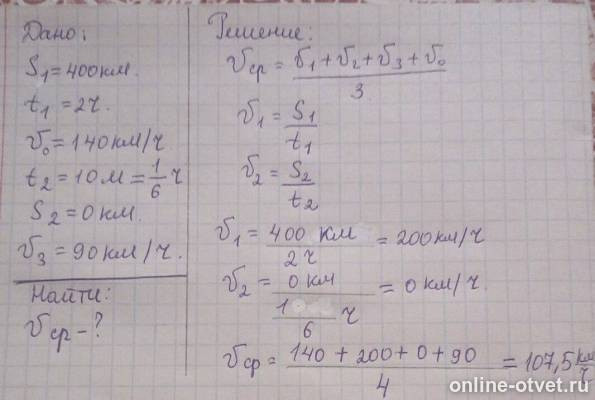 Дано:
S₁ = 400 км.
t₁ = 2 ч.
v₀ = 140 км/ч
t₂ = 10 м = 1/6 ч
S₂ = 0 км.
v₃ = 90 км/ч.
Найти:
vср - ?
Решение:
vср = (v₁ + v₂ + v₃ + v₀)/3
v₁ = S₁/t₁
v₂ = S₂/t₂
v₁ = 400 км/2 ч = 200 км/ч
v₂ = 0 км/(1/6 ч) = 0 км/ч.
vср = (140 + 200 + 0 + 90)/4 = 107,5 км/ч
online-otvet.ru